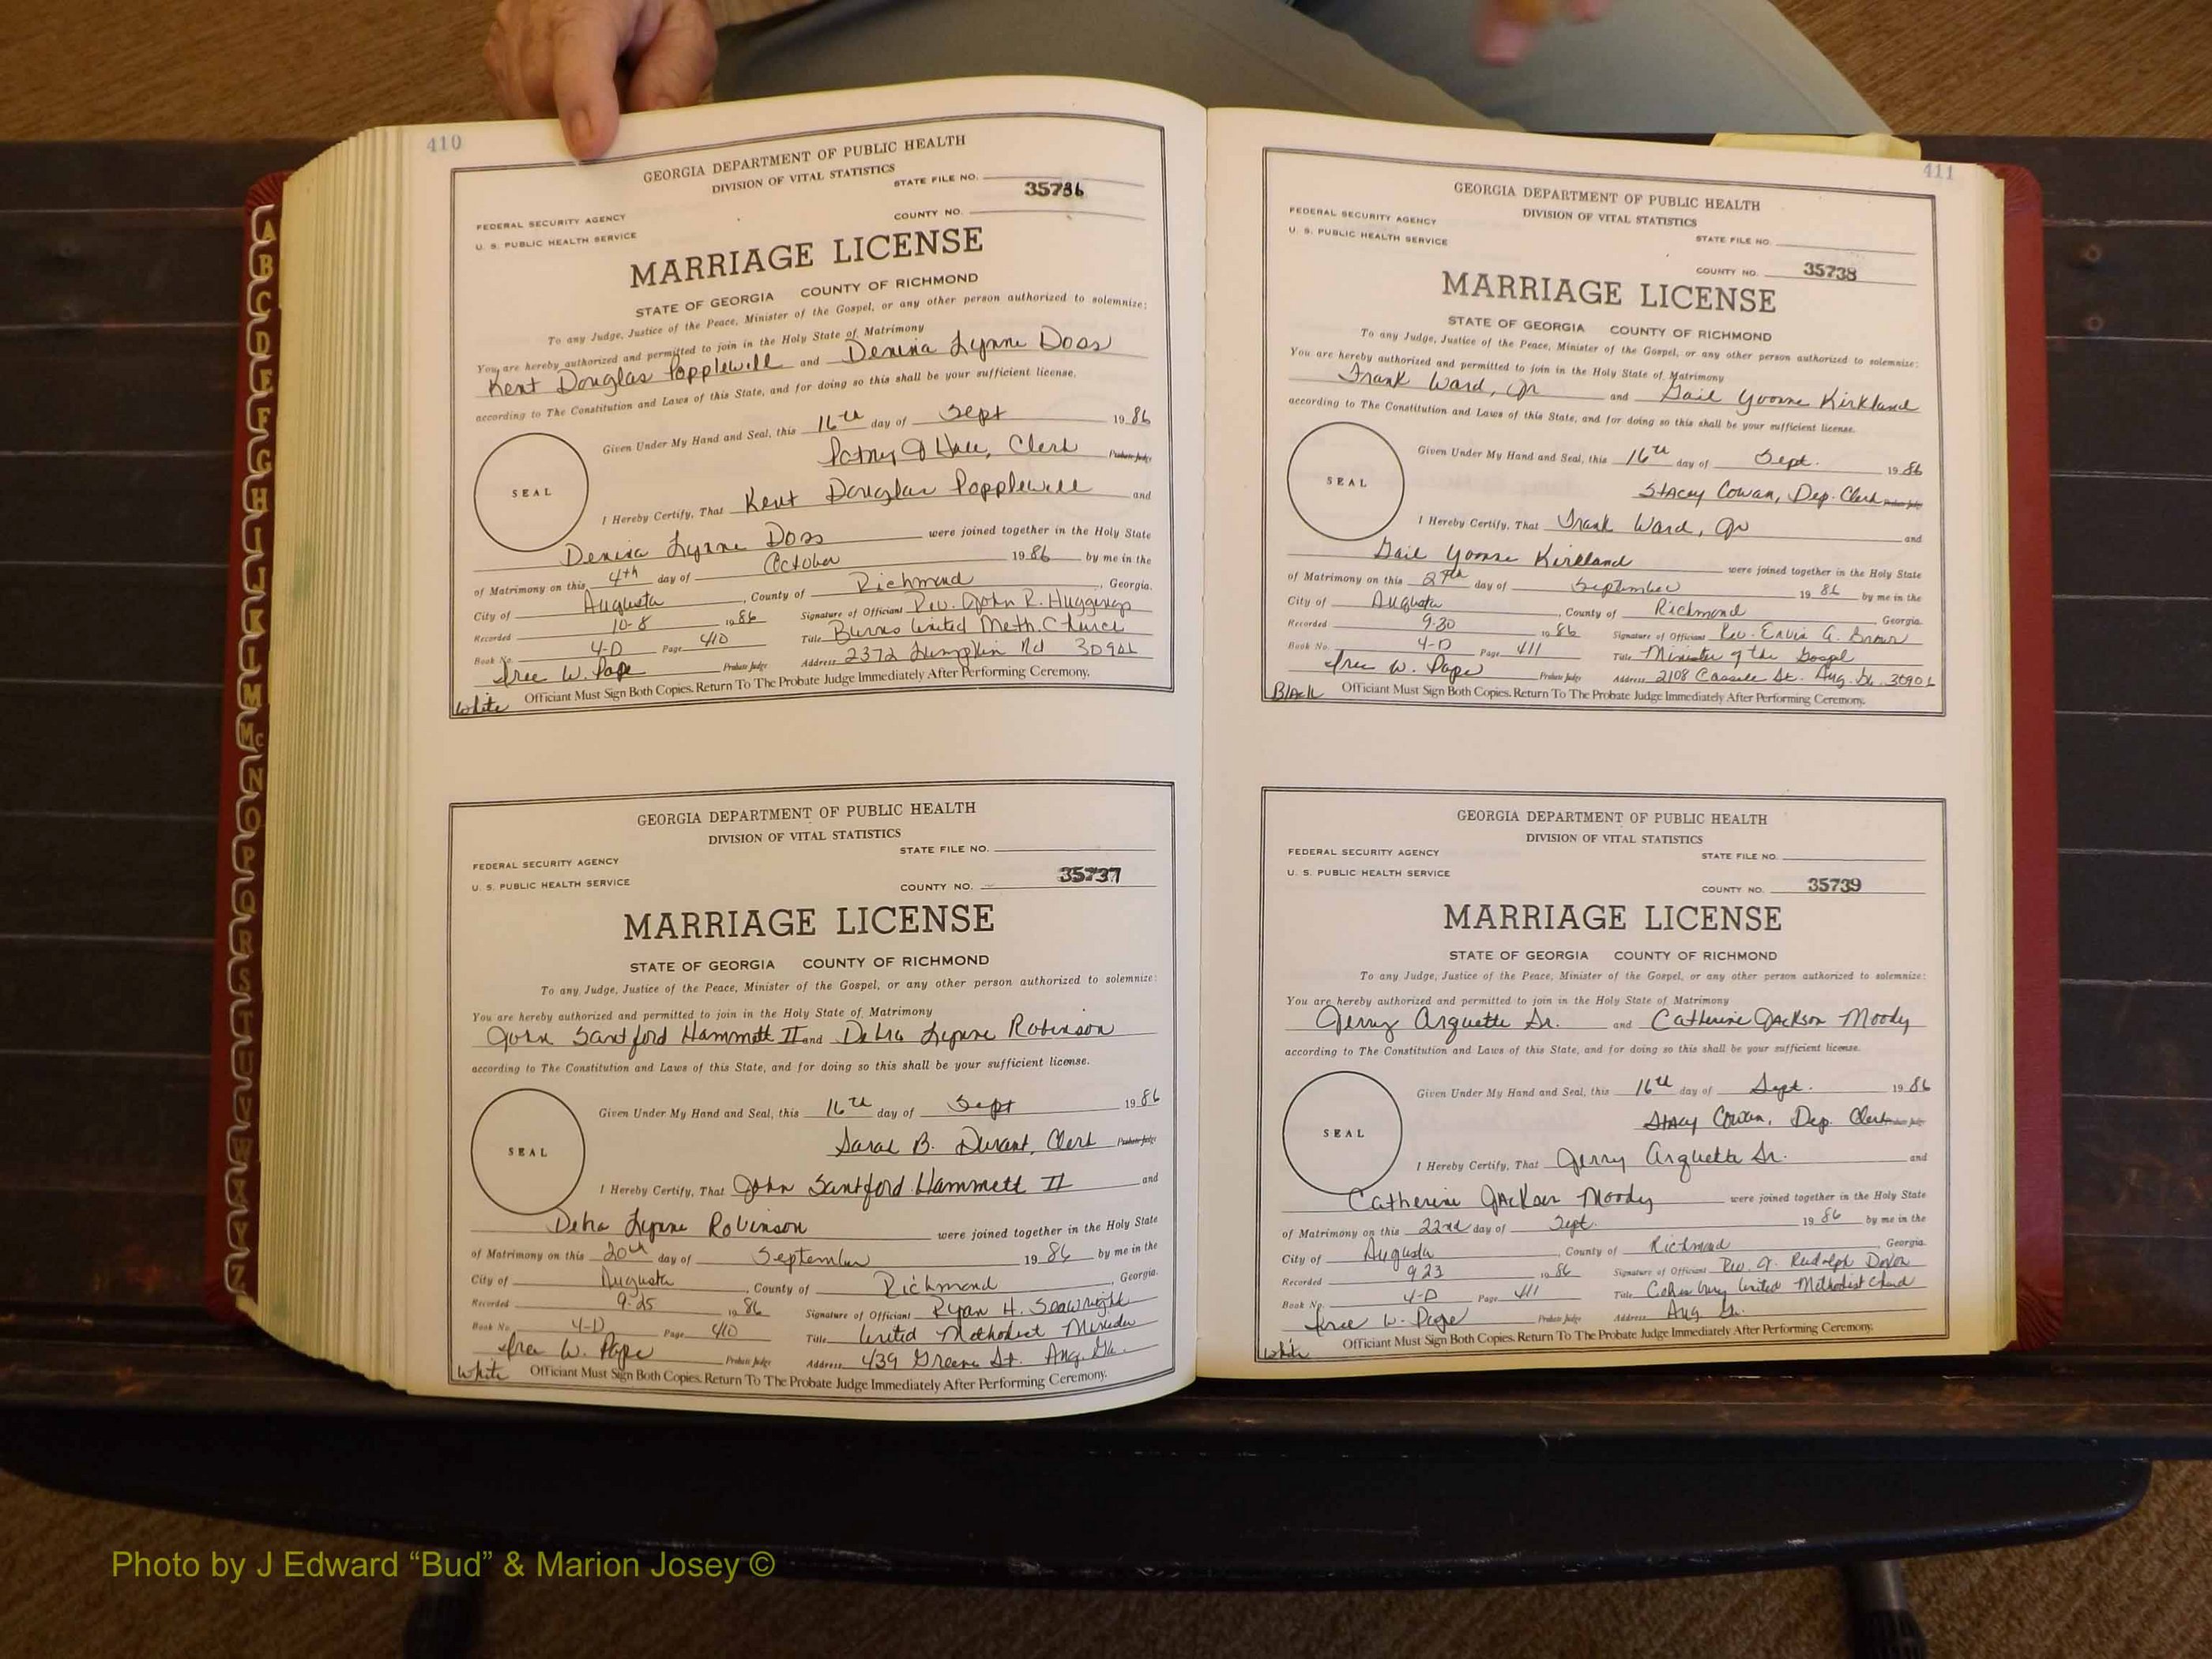 410
GEORGIA DEPARTMENT OF PUBLIC HEALTH
DIVISION OF VITAL STATISTICS
STATE FILE NO.
35736
FEDERAL SECURITY AGENCY
COUNTY NO.
U. S. PUBLIC HEALTH SERVICE
MARRIAGE LICENSE
STATE OF GEORGIA COUNTY OF RICHMOND
To any Judge, Justice of the Peace, Minister of the Gospel, or any other person authorized to solemnize:
You are hereby authorized and permitted to join in the Holy State of Matrimony
Kent Douglas Popplewell and Denina Lynne Doss
according to The Constitution and Laws of this State, and for doing so this shall be your sufficient license.
Given Under My Hand and Seal, this 16th day of Sept 1986
Hall, Clerk Probate Judge
SEAL
I Hereby Certify, That Kent Douglas Popplewell and
Denina Lynne Doss were joined together in the Holy State
of Matrimony on this 4th day of October 1986 by me in the
City of Augusta, County of Richmond, Georgia.
Recorded 10-8 1986 Signature of Officiant Rev. John R. Huggins
Book No. 4-D Page 410 Title Burns United Meth. Church
Address 2372 Lumpkin Rd
W. Pape Probate Judge
White Officiant Must Sign Both Copies. Return To The Probate Judge Immediately After Performing Ceremony.
GEORGIA DEPARTMENT OF PUBLIC HEALTH
DIVISION OF VITAL STATISTICS
STATE FILE NO.
FEDERAL SECURITY AGENCY
35737
U. S. PUBLIC HEALTH SERVICE
COUNTY NO.
MARRIAGE LICENSE
STATE OF GEORGIA COUNTY OF RICHMOND
To any Judge, Justice of the Peace, Minister of the Gospel, or any other person authorized to solemnize:
You are hereby authorized and permitted to join in the Holy State of Matrimony
John Santford Hammett II and Debra Lynne Robinson
according to The Constitution and Laws of this State, and for doing so this shall be your sufficient license.
Given Under My Hand and Seal, this 16th day of Sept 1986
Sarah B. Durant, Clerk Probate Judge
SEAL
I Hereby Certify, That John Santford Hammett II and
Debra Lynne Robinson were joined together in the Holy State
of Matrimony on this 20th day of September 1986 by me in the
City of Augusta, County of Richmond, Georgia.
Recorded 9-25 1986 Signature of Officiant Ryan H. Seawright
Book No. 4-D Page 410 Title United Methodist Minister
W. Pape Probate Judge Address 439 Greene St. Aug. Ga.
White Officiant Must Sign Both Copies. Return To The Probate Judge Immediately After Performing Ceremony.
411
GEORGIA DEPARTMENT OF PUBLIC HEALTH
DIVISION OF VITAL STATISTICS
FEDERAL SECURITY AGENCY
U. S. PUBLIC HEALTH SERVICE
STATE FILE NO.
COUNTY NO. 35738
MARRIAGE LICENSE
STATE OF GEORGIA COUNTY OF RICHMOND
To any Judge, Justice of the Peace, Minister of the Gospel, or any other person authorized to solemnize:
You are hereby authorized and permitted to join in the Holy State of Matrimony
Frank Ward, Jr and Gail Yvonne Kirkland
according to The Constitution and Laws of this State, and for doing so this shall be your sufficient license.
Given Under My Hand and Seal, this 16th day of Sept. 1986
Stacey Cowan, Dep. Clerk Probate Judge
SEAL
I Hereby Certify, That Frank Ward, Jr and
Gail Yvonne Kirkland were joined together in the Holy State
of Matrimony on this 27th day of September 1986 by me in the
City of Augusta, County of Richmond Georgia.
Recorded 9-30 1986 Signature of Officiant Rev. Ervin G. Brown
Book No. 4-D Page 411 Title Minister of the Gospel
W. Pape Probate Judge Address 2108 St. Aug. Ga. 30901
Black Officiant Must Sign Both Copies. Return To The Probate Judge Immediately After Performing Ceremony.
GEORGIA DEPARTMENT OF PUBLIC HEALTH
DIVISION OF VITAL STATISTICS
FEDERAL SECURITY AGENCY
STATE FILE NO.
U. S. PUBLIC HEALTH SERVICE
COUNTY NO. 35739
MARRIAGE LICENSE
STATE OF GEORGIA COUNTY OF RICHMOND
To any Judge, Justice of the Peace, Minister of the Gospel, or any other person authorized to solemnize:
You are hereby authorized and permitted to join in the Holy State of Matrimony
Jerry Arguette Sr. and Catherine Jackson Moody
according to The Constitution and Laws of this State, and for doing so this shall be your sufficient license.
Given Under My Hand and Seal, this 16th day of Sept. 1986
Stacy Cowan, Dep. Clerk Probate Judge
SEAL
I Hereby Certify, That Jerry Arguette Sr. and
Catherine Jackson Moody were joined together in the Holy State
of Matrimony on this 22nd day of Sept. 1986 by me in the
City of Augusta, County of Richmond, Georgia.
Recorded 9 23 1986 Signature of Officiant Rev. J. Rudolph
Book No. 4-D Page 411 Title United Methodist Church
W. Pape Probate Judge Address Aug Ga.
White Officiant Must Sign Both Copies. Return To The Probate Judge Immediately After Performing Ceremony.
A
B
C
D
E
F
G
H
I
J
K
L
M
Mc
N
O
P
Q
R
S
T
U
V
W
X
Y
Z
Photo by J Edward “Bud” & Marion Josey ©